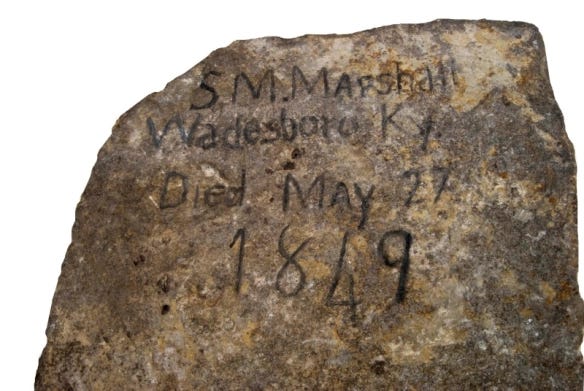 S.M. Marshall
Wadesboro Ky.
Died May 27
1849